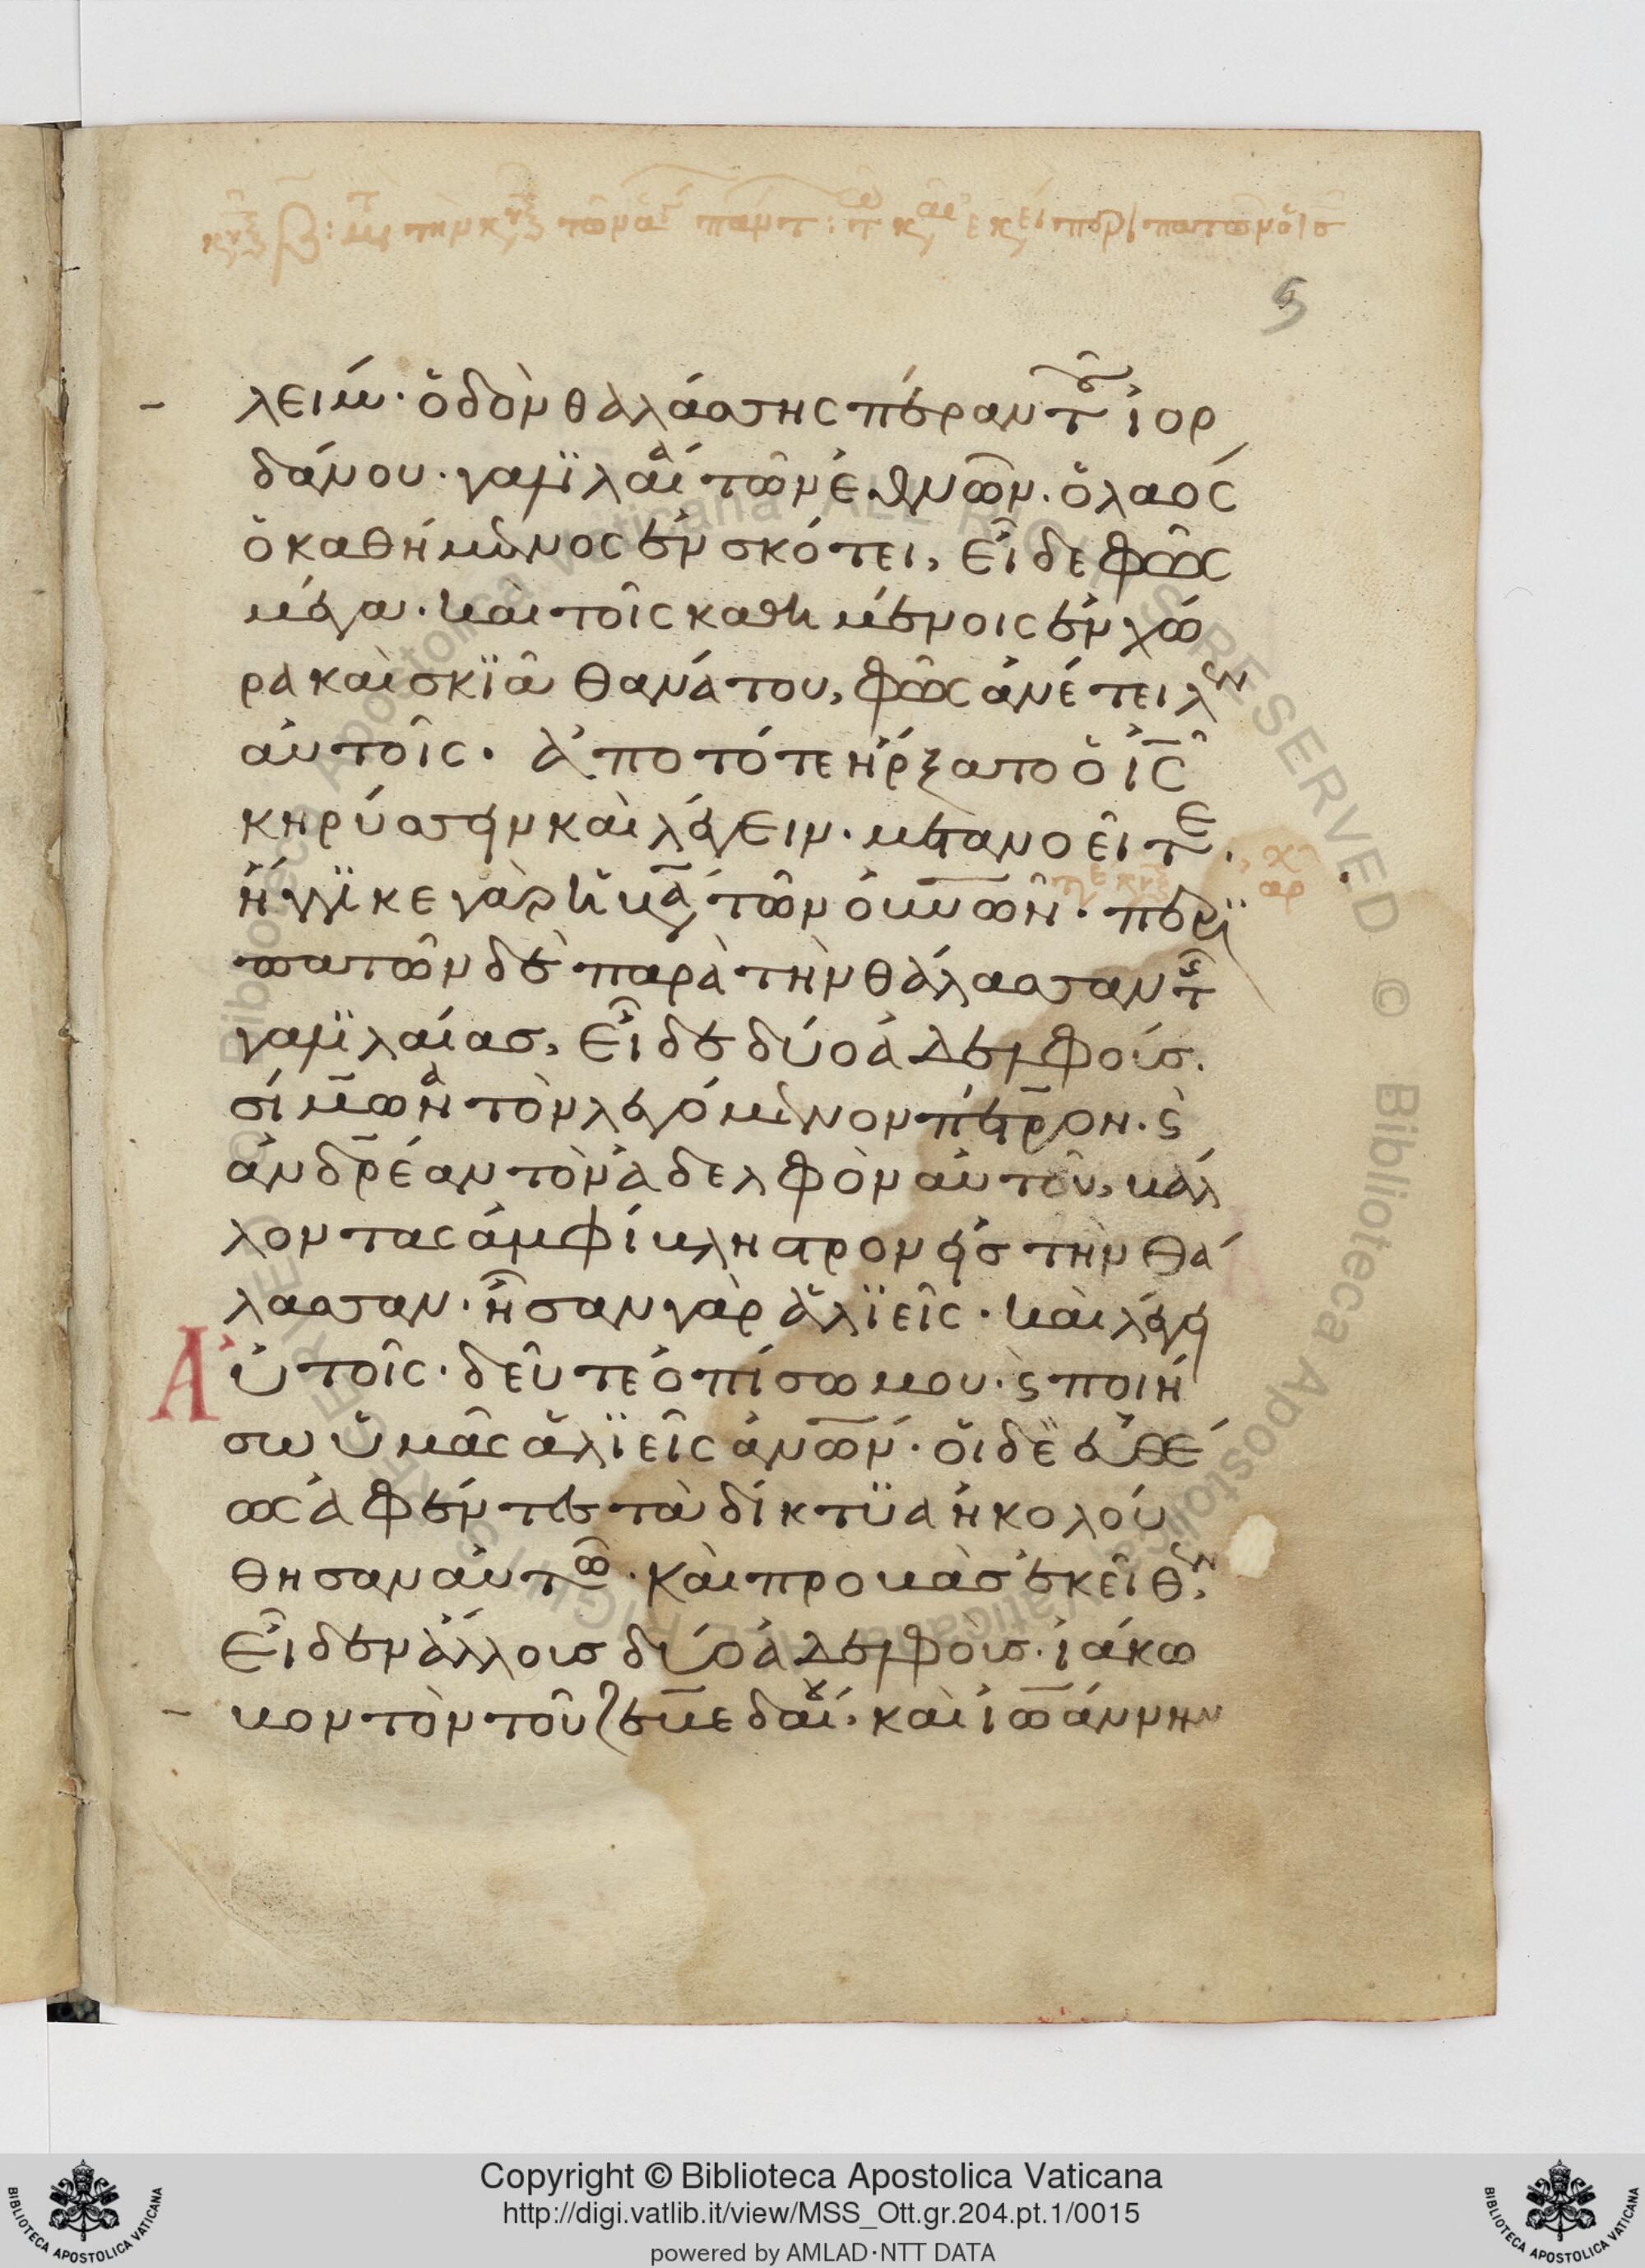 5
λείμ· ὁδὸν θαλάσσης πέραν τοῦ ἰορ
δάνου· γαλιλαία τῶν ἐθνῶν. ὁ λαός
ὁ καθήμενος ἐν σκότει, εἶδε φῶς
μέγα· καὶ τοῖς καθημένοις ἐν χώ
ρα καὶ σκϊᾶ θανάτου, φῶς ἀνέτειλεν
αὐτοῖς. ἀπο τότε ἤρξατο ὁ ἰς
κηρύσσειν καὶ λέγειν· μετανοεῖτε.
ἤγγικε γὰρ ἡ βασιλεία τῶν οὐνῶν· περϊ
πατῶν δὲ παρὰ τὴν θάλασσαν τῆς
γαλιλαίας, εἶδε δύο ἀδελφούς.
σίμωνα τὸν λεγόμενον πέτρον. ϛ
ἀνδρέαν τὸν ἀδελφὸν αὐτοῦ, βάλ
λοντας ἀμφίβληστρον εἰς τὴν θά
λασσαν· ἦσαν γὰρ ἁλϊεῖς· καὶ λέγει
Αὐτοῖς· δεῦτε ὀπίσω μου· ϛ ποιή
σω ὑμᾶς ἁλϊεῖς ἀνων· οἱ δὲ εὐθέ
ως ἀφέντες τὰ δίκτϋα ἠκολού
θησαν αὐτῶ· καὶ προβὰς ἐκεῖθεν,
εἶδεν ἄλλους δύο ἀδελφούς· ἰάκω
βον τὸν τοῦ ζεβεδαίου· καὶ ἰωάννην
Copyright © Biblioteca Apostolica Vaticana
http://digi.vatlib.it/view/MSS_Ott.gr.204.pt.1/0015
powered by AMLAD·NTT DATA
BIBLIOTECA APOSTOLICA VATICANA
BIBLIOTECA APOSTOLICA VATICANA